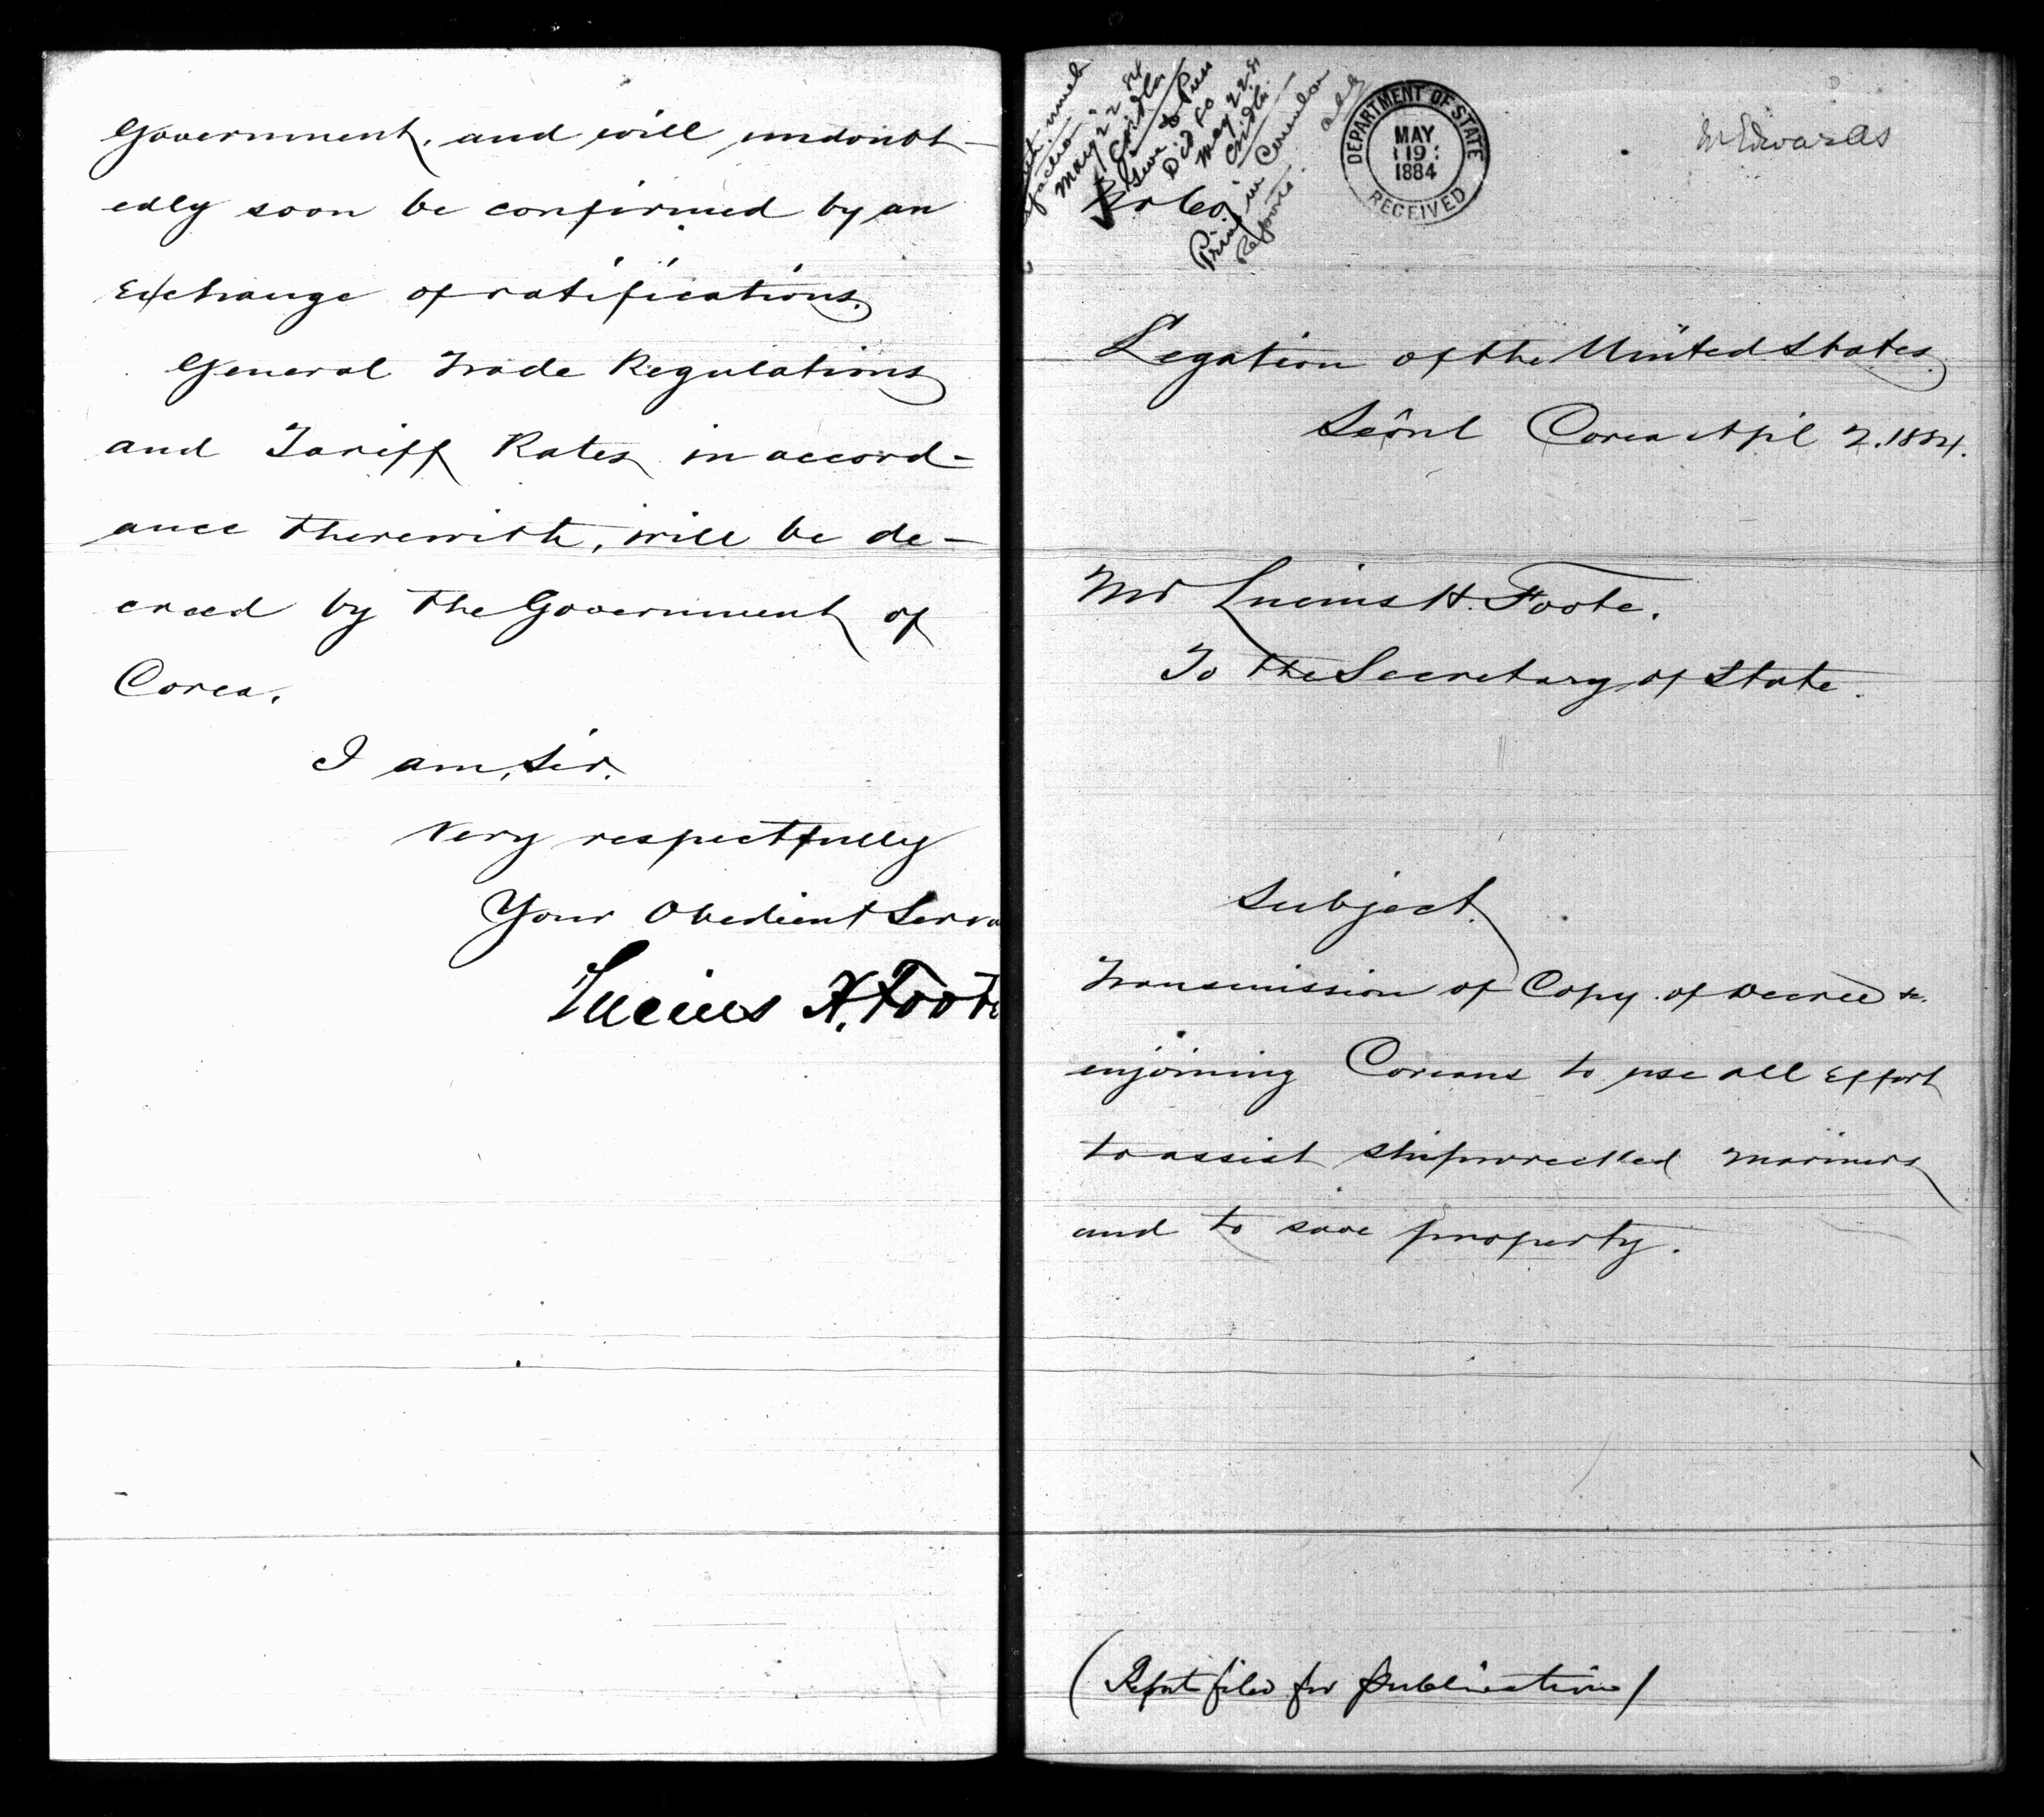 Government, and will undoubt-
edly soon be confirmed by an
Exchange of ratifications.
General Trade Regulations
and Tariff Rates in accord-
ance therewith, will be de-
creed by the Government of
Corea.
I am, Sir,
Very respectfully
Your Obedient Serva
Lucius H. Foote
May 22 84
Cridler
Give to Press
May 22 84
Cridler
Print in Consular
Reports.
DEPARTMENT OF STATE
MAY
19
1884
RECEIVED
Edwards
Legation of the United States.
Seôul Corea Apl 2. 1884.
Mr Lucius H. Foote.
To the Secretary of State.
Subject.
Transmission of Copy of Decree &c.
enjoining Coreans to use all Effort
to assist shipwrecked mariners
and to save property.
(Report filed for publication)